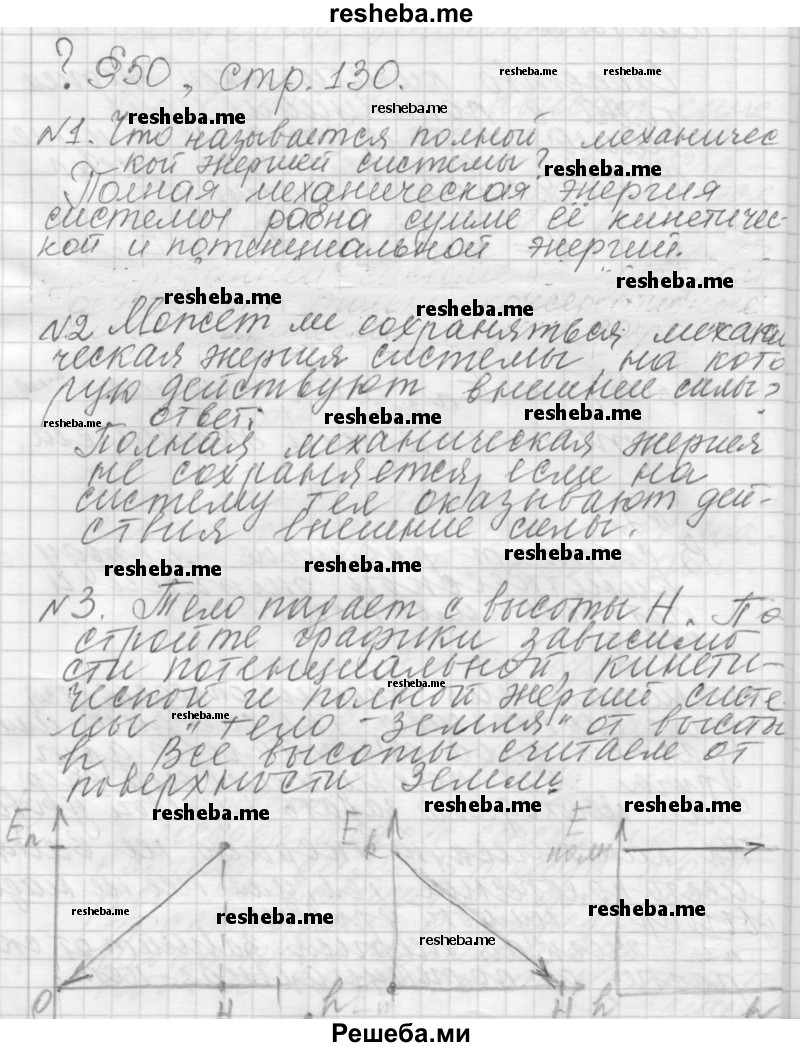 resheba.me
? §50, стр. 130.
resheba.me resheba.me
resheba.me resheba.me
№1. Что называется полной механичес
кой энергией системы?
resheba.me
Полная механическая энергия
системы равна сумме её кинетичес-
кой и потенциальной энергий.
resheba.me
resheba.me resheba.me
№2 Может ли сохраняться механи
ческая энергия системы, на кото
рую действуют внешние силы?
resheba.me ответ: resheba.me resheba.me
Полная механическая энергия
не сохраняется, если на
систему тел оказывают дей-
ствия внешние силы.
resheba.me resheba.me resheba.me
№3. Тело падает с высоты H. По
стройте графики зависимо
сти потенциальной, кинети-
resheba.me
ческой и полной энергий систе
resheba.me
мы "тело - земля" от высоты
h Все высоты считаем от
поверхности Земли.
resheba.me resheba.me resheba.me
Eп Ek E
полн
resheba.me resheba.me resheba.me
resheba.me
0 H h H h h
Решеба.ми